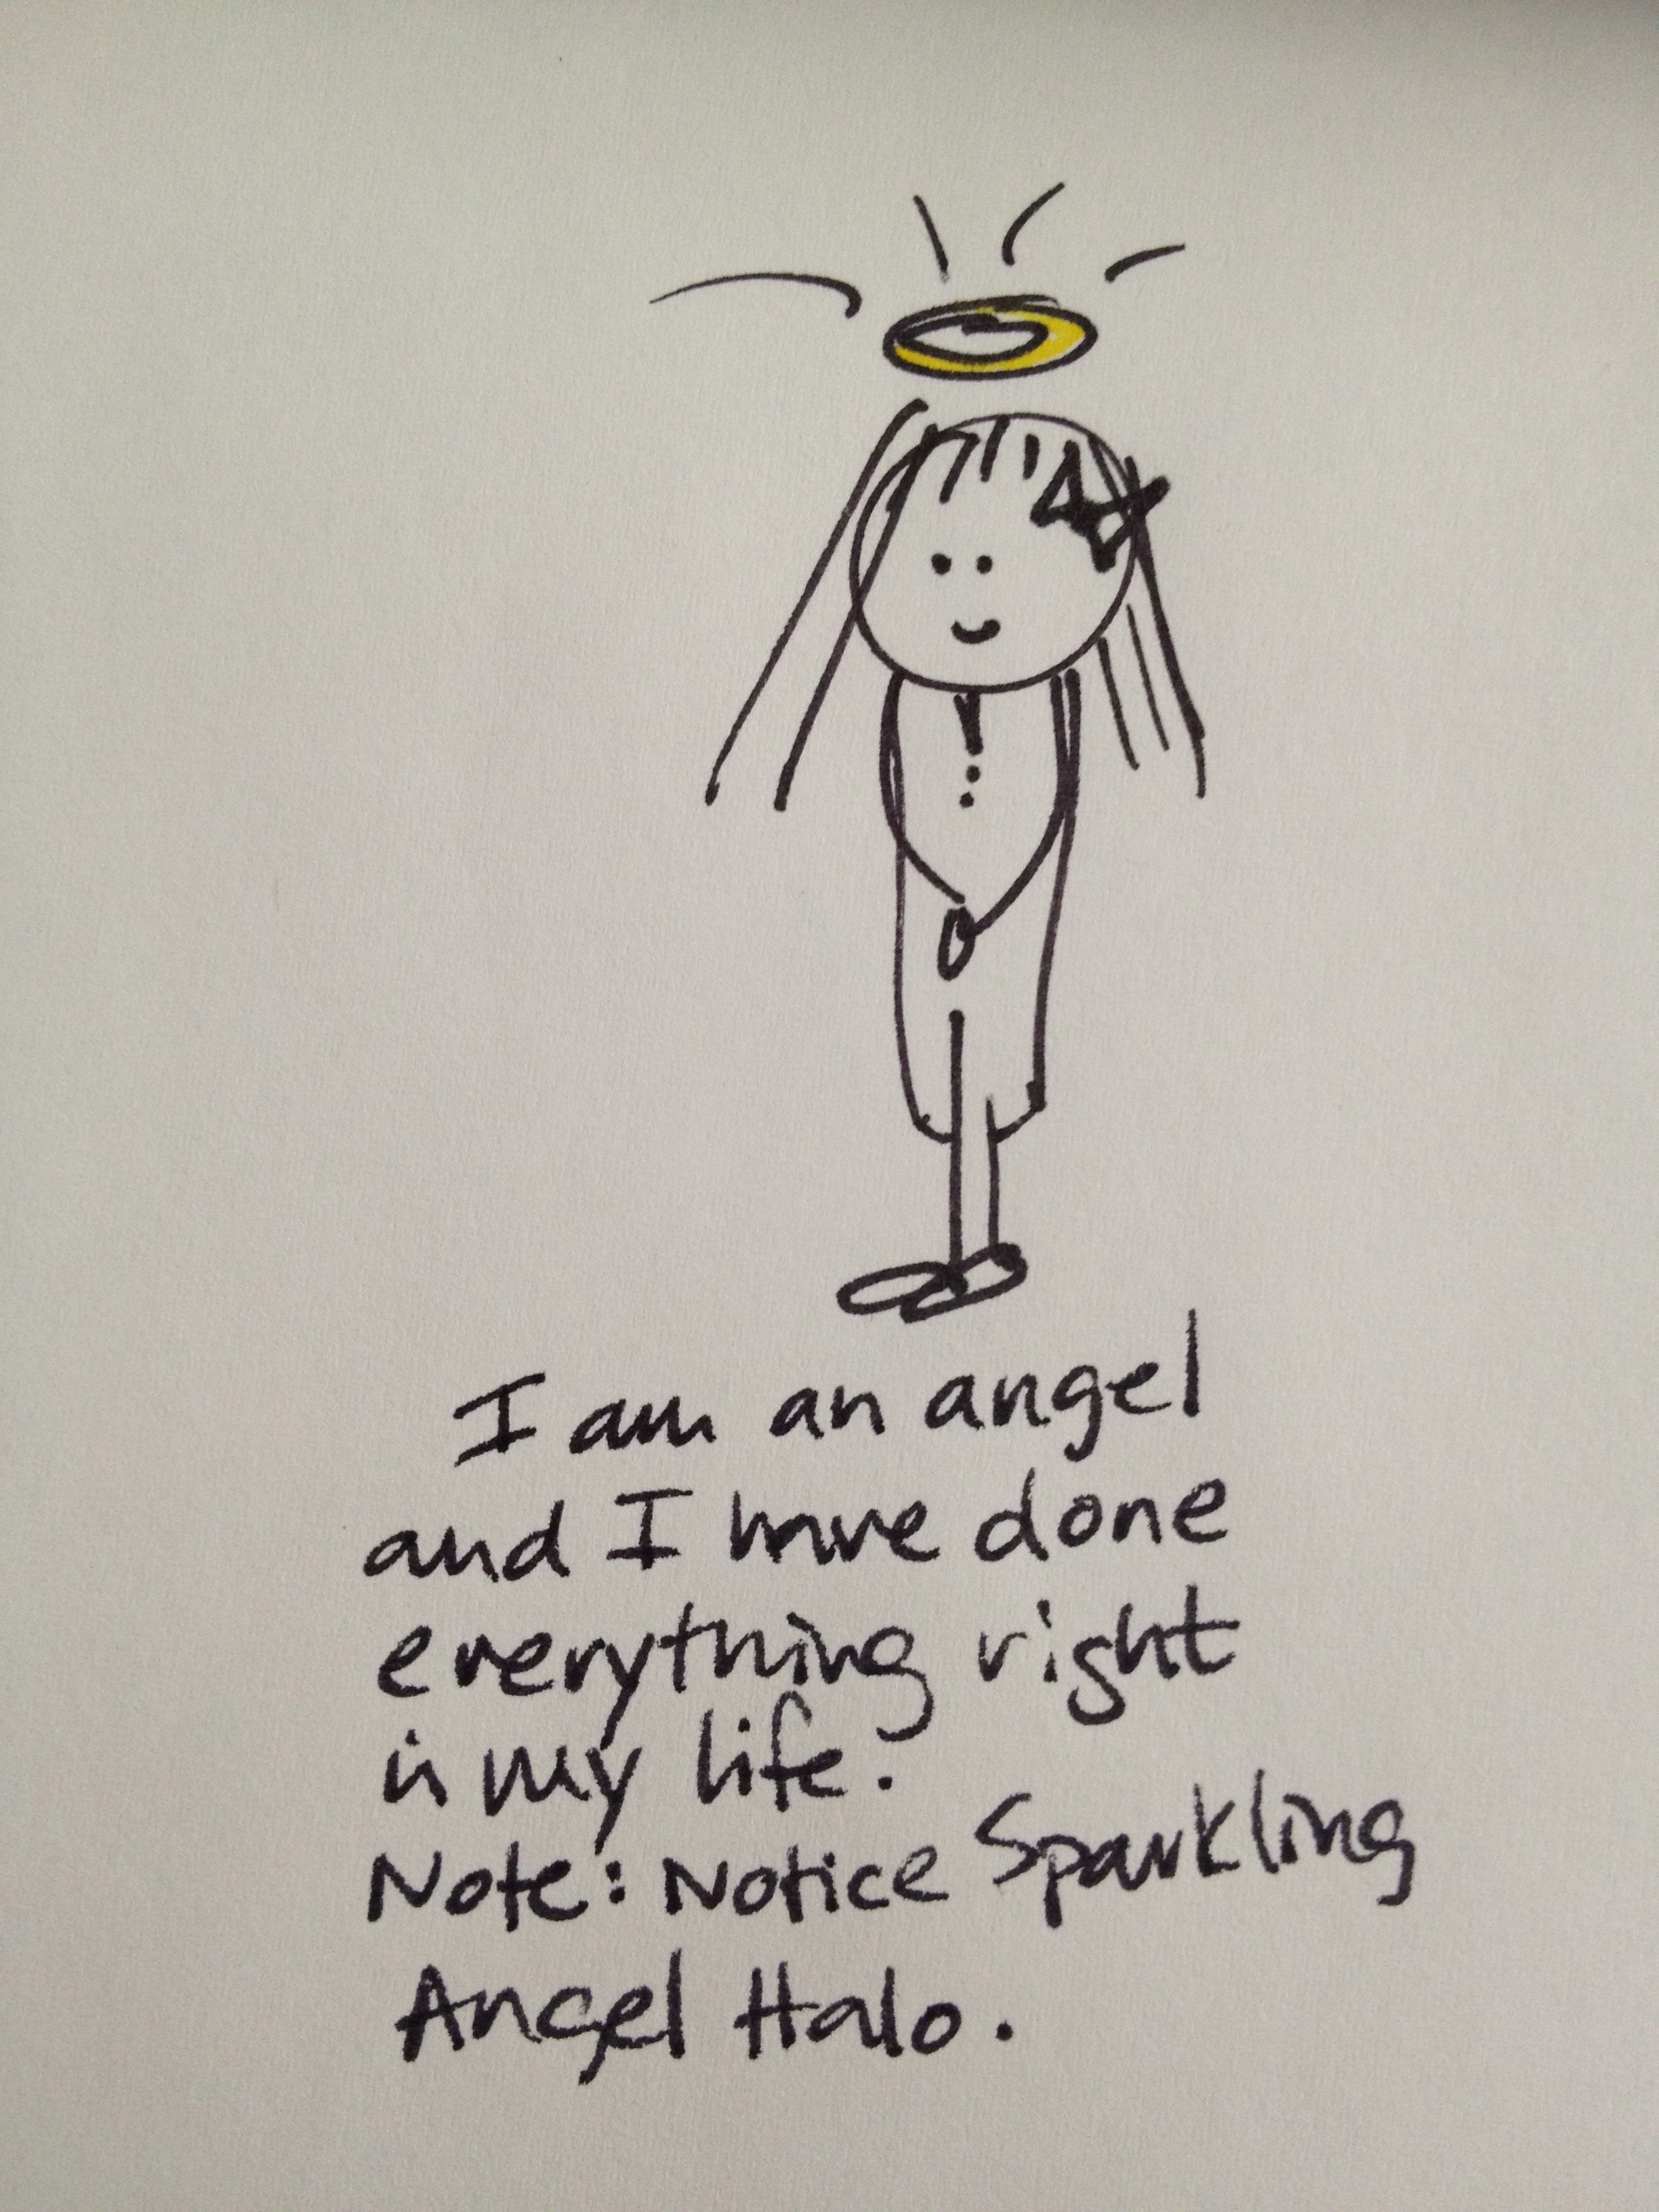 I am an angel
and I have done
everything right
in my life.
Note: Notice Sparkling
Angel Halo.